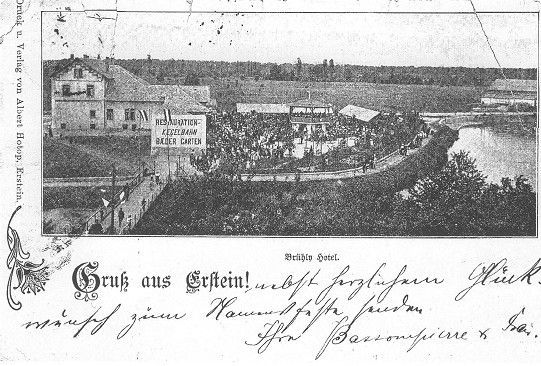 Druck u. Verlag von Albert Hotop, Erstein.
RESTAURATION-
KEGELBAHN
BÆDER GARTEN
Brühly Hotel.
Gruß aus Erstein! nebst herzlichem Glück-
wünsch zum Namensfeste senden
Ihre Bassompierre &